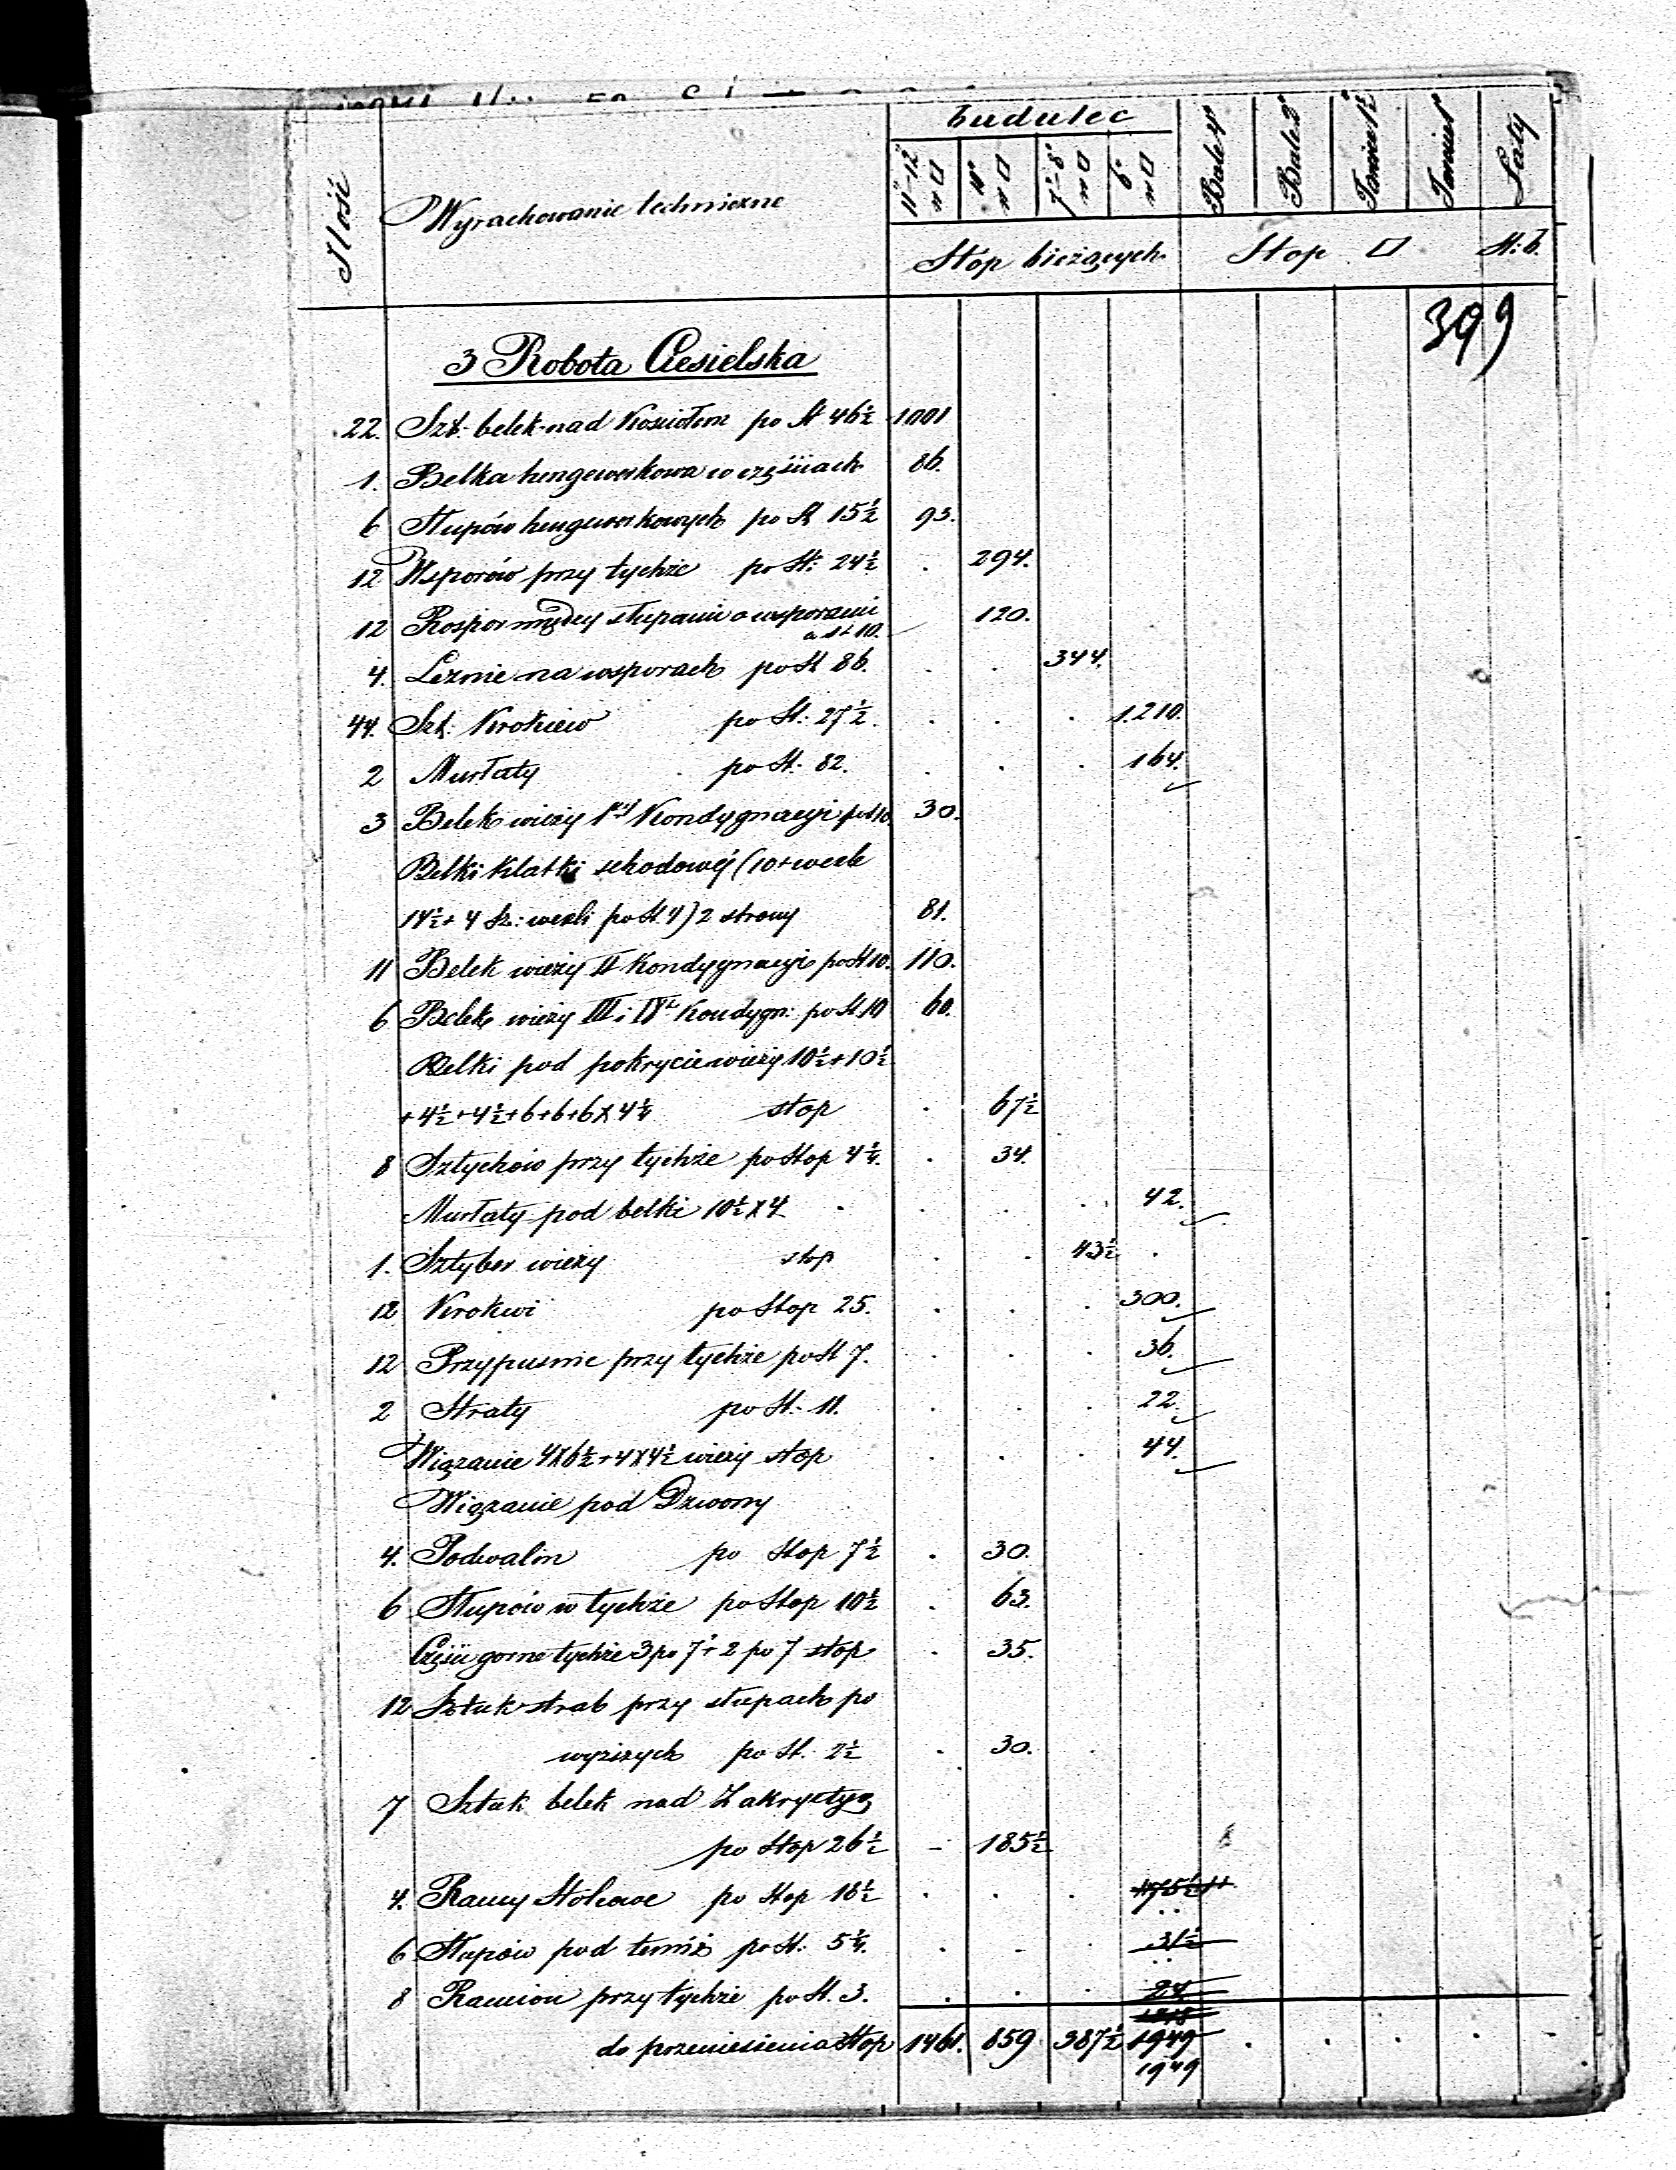 budulec
Ilość
Wyrachowanie techniczne
11"-12" w □
10" w □
7"-8" w □
6" w □
Bale 4"
Bale 3"
Tarcice 1½"
Tarcice 1"
Łaty
Stóp bieżących
Stop □
St: b.
399
3 Robota Ciesielska
22. Szt. belek nad Kosciołem po St 46½ 1001
1. Belka hengewerkowa w częsciach 86.
6 Słupów hengwerkowych po St 15½ 93.
12 Wsporów przy tychże po St: 24½ . 294.
12 Rospor między słupami a wsporami
a St 10. 120.
4. Leznie na wsporach po St 86. . . 344.
44. Szt. Krokiew po St: 27½. . . . 1.210.
2 Murłaty po St. 82. . . . 164.
3 Belek wieży 1ej Kondygnacyi po St 10. 30.
Belki Klatki schodowéj (10+wexle
14½+4 Sz: wexli po St. 4) 2 strony 81.
11 Belek wieży II Kondygnacyi po St 10. 110.
6 Belek wieży III i IV Kondygn: po St. 10 60.
Belki pod pokrycie wieży 10½+10½
+4½+4½+6+6+6x4¼ stop . 67½
8 Sztychów przy tychże po Stop 4¼. . 34.
Murłaty pod belki 10½x4 . . . . 42.
1. Sztyber wieży stop . . 43½ .
12 Krokwi po Stop 25. . . . 300.
12 Przypusnic przy tychże po St 7. . . . 36.
2 Straty po St. 11. . . . 22.
Wiązanie 4x6½+4x4½ wieży stop . . . 44.
Wiązanie pod Dzwony
4. Podwalin po Stop 7½ . 30.
6 Słupów w tychże po Stop 10½ . 63.
Częsci gorne tychże 3 po 7+2 po 7 stop . 35.
12 Sztuk strab przy słupach po
wyższych po St. 2½ . 30. .
7 Sztuk belek nad Zakrystyą
po Stop 26½ - 185½
4. Ramy Stolcowe po Stop 18½ . . .
6 Słupów pod temiż po St: 5¼. . . . 31½
8 Ramion przy tychże po St. 3. . . . 24
do przeniesienia Stop 1461. 859 387½ 1949 . . . . .
1949